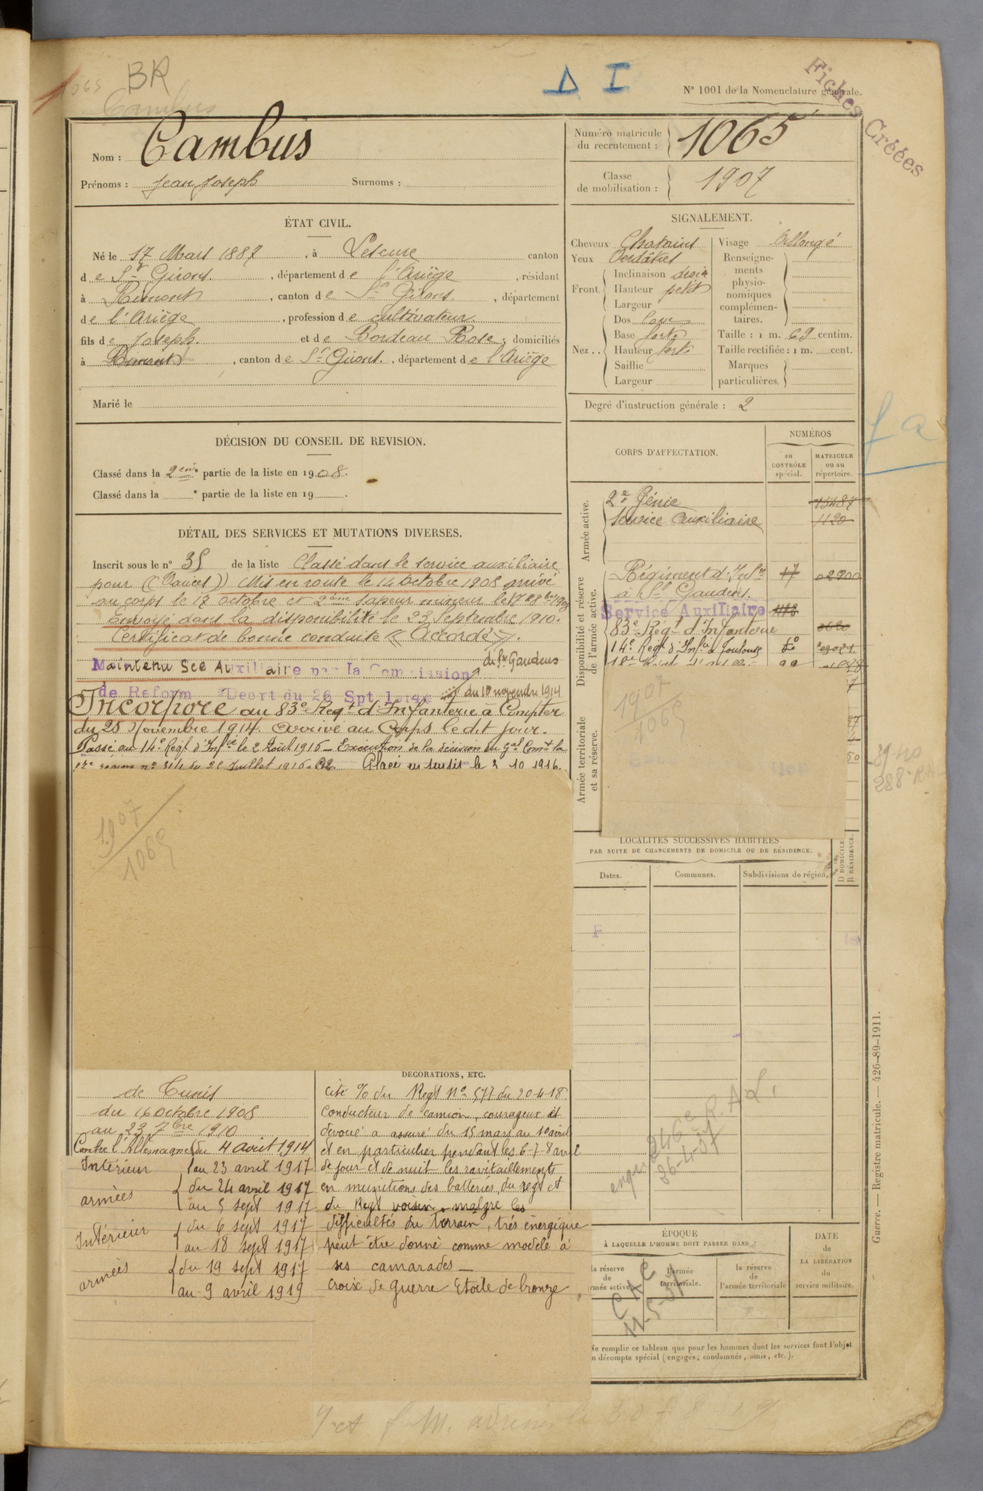 BR
Δ I
N° 1001 de la Nomenclature générale.
Fiches Créées
Nom : Cambus
Prénoms : Jean Joseph Surnoms :
Numéro matricule
du recrutement : 1065
Classe
de mobilisation : 1907
ÉTAT CIVIL.
Né le 17 Mars 1887, à Lescure canton
de St Girons, département de l'Ariège, résidant
à Rimont, canton de St Girons, département
de l'Ariège, profession de cultivateur
fils de Joseph et de Bordeau Rose, domiciliés
à Rimont, canton de St Girons, département de l'Ariège
Marié le
SIGNALEMENT.
Cheveux Chatains
Yeux Verdâtres
Front.
Inclinaison droit
Hauteur petit
Largeur
Nez..
Dos
Base forte
Hauteur forte
Saillie
Largeur
Visage allongé
Renseigne-
ments
physio-
nomiques
complémen-
taires.
Taille : 1 m. 69 centim.
Taille rectifiée : 1 m. cent.
Marques
particulières.
Degré d'instruction générale : 2
DÉCISION DU CONSEIL DE REVISION.
Classé dans la 2ème partie de la liste en 1908.
Classé dans la e partie de la liste en 19 .
DÉTAIL DES SERVICES ET MUTATIONS DIVERSES.
Inscrit sous le n° 35 de la liste Classé dans le service auxiliaire
pour (Varices) Mis en route le 14 octobre 1908 arrivé
au corps le 17 octobre et 2ème sapeur mineur le
Envoyé dans la disponibilité le 23 Septembre 1910.
Certificat de bonne conduite « Accordé ».
Maintenu Sce Auxiliaire par la Commission de St Gaudens
de Réform Décrt du 26 Spt du 10 novembre 1914
Incorporé au 83e Régt d'Infanterie à Compter
du 25 Novembre 1914. Arrivé au Corps le dit jour.
Passé au 14e Régt d'Infie le 2 Août 1916 – Exécution de la décision du Gal Comt la
n° du 21 Juillet 1916. le 3 10 1916.
1907
1065
CORPS D'AFFECTATION.
NUMÉROS
au
CONTRÔLE
spécial.
MATRICULE
ou au
répertoire.
Armée active.
2e Génie
Service auxiliaire 1120
Disponibilité et réserve
de l'armée active.
Régiment d'Infie 17
à St Gaudens
Service Auxiliaire
83e Régt d'Infanterie
14e Régt d'Infie à Toulouse
Armée territoriale
et sa réserve.
1907
1065
LOCALITÉS SUCCESSIVES HABITÉES
PAR SUITE DE CHANGEMENTS DE DOMICILE OU DE RÉSIDENCE.
Dates.
Communes.
Subdivisions de région.
D DOMICILE.
R RÉSIDENCE.
de Tunis
du 16 octobre 1908
au 23 7bre 1910
Contre l'Allemagne du 4 août 1914
Intérieur au 23 avril 1917
armées du 24 avril 1917
au 5 sept 1917
Intérieur du 6 sept 1917
au 18 sept 1917
armées du 19 sept 1917
au 9 avril 1919
DÉCORATIONS, ETC.
cité o/o du Régt N° 577 du 20-4-18
Conducteur de camion, courageux et
dévoué a assuré du 15 mars au 1e avril
et en particulier pendant les 6-7-8 avril
de jour et de nuit les ravitaillements
en munitions des batteries du régt et
du Régt voisin malgré les
difficultés du terrain, très énergique
peut être donné comme modèle à
ses camarades –
croix de guerre Etoile de bronze
246e R.A.L.
26-4-37
ÉPOQUE
À LAQUELLE L'HOMME DOIT PASSER DANS
la réserve
de
armée active
l'armée
territoriale.
la réserve
de
l'armée territoriale
DATE
de
LA LIBÉRATION
du
service militaire.
Ne remplir ce tableau que pour les hommes dont les services font l'objet
d'un décompte spécial (engagés, condamnés, omis, etc.).
Guerre. — Registre matricule. — 426-89-1911.